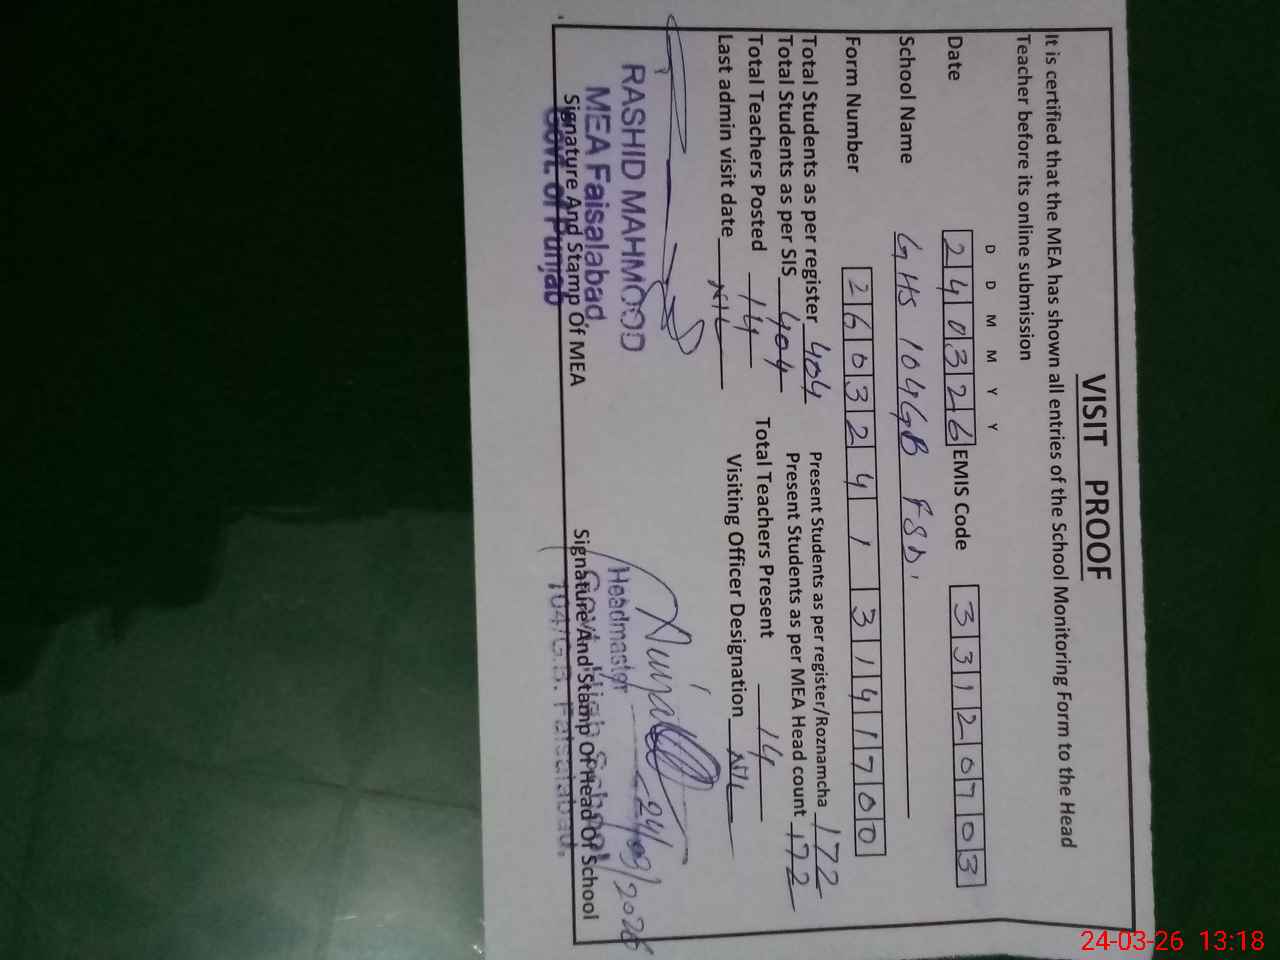 VISIT PROOF
It is certified that the MEA has shown all entries of the School Monitoring Form to the Head
Teacher before its online submission
D D M M Y Y
Date 240326 EMIS Code 33120703
School Name GHS 104GB FSD.
Form Number 2603241 3141700
Total Students as per register 404 Present Students as per register/Roznamcha 172
Total Students as per SIS 404 Present Students as per MEA Head count 172
Total Teachers Posted 14 Total Teachers Present 14
Last admin visit date NIL Visiting Officer Designation NIL
RASHID MAHMOOD
MEA Faisalabad
Govt. of Punjab
Signature And Stamp Of MEA
24/03/2026
Headmaster
Govt. High School
104/G.B. Faisalabad.
Signature And Stamp Of Head Of School
24-03-26 13:18